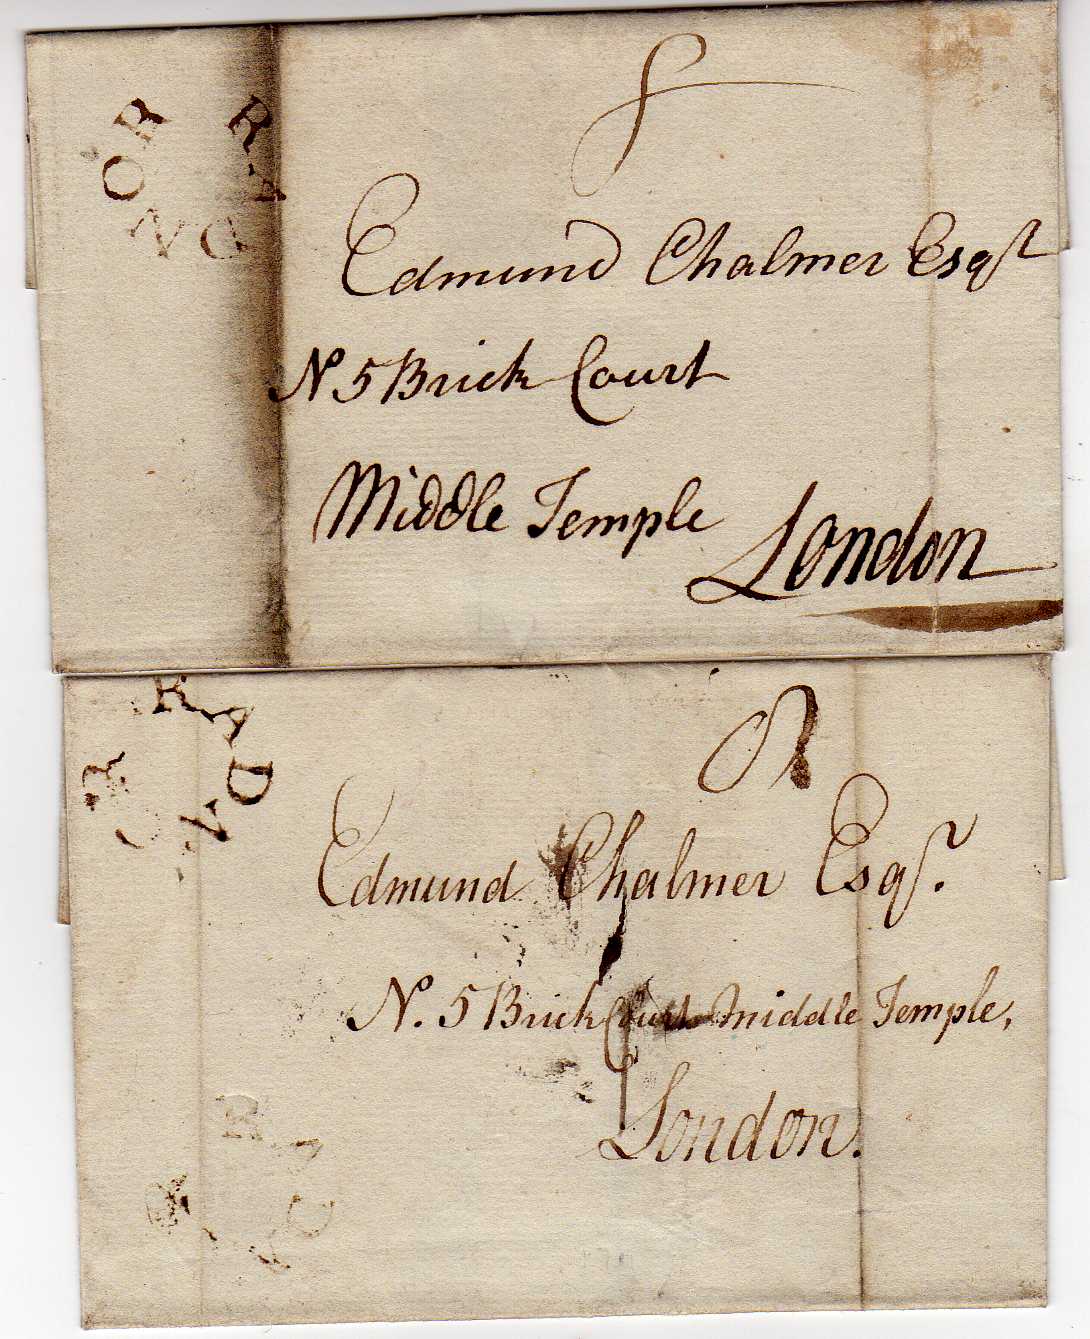 RADNOR
Edmund Chalmer Esqr
No 5 Brick Court
Middle Temple
London
RADNOR
Edmund Chalmer Esqr.
No. 5 Brick Court Middle Temple,
London.